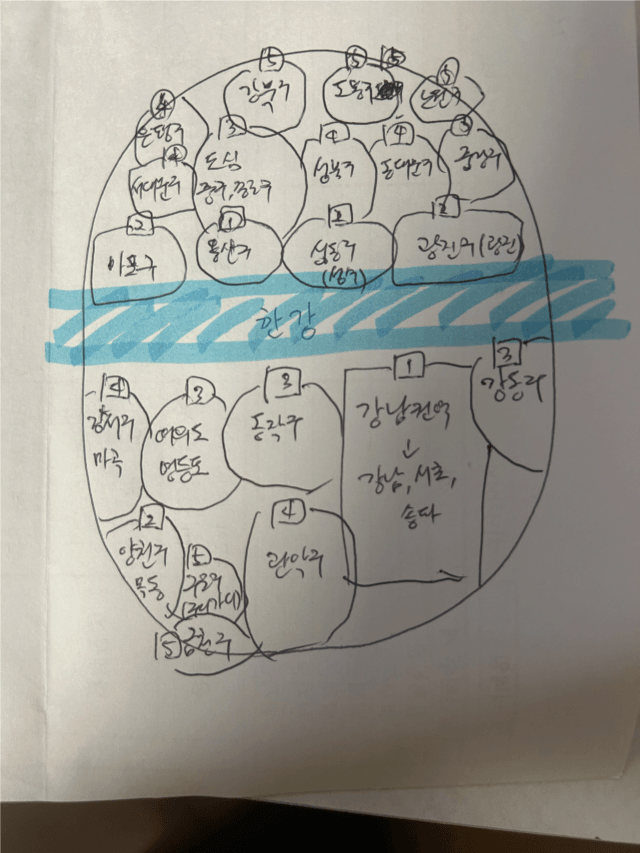 5
강북구
5
도봉구
5
노원구
4
은평구
4
서대문구
3
도심
중구, 종로구
4
성북구
4
동대문구
3
중랑구
2
마포구
1
용산구
2
성동구
2
광진구(광진)
한강
4
강서구
마곡
3
여의도
영등포
3
동작구
1
강남권역
↓
강남, 서초,
송파
3
강동구
2
양천구
목동
5
구로구
4
관악구
5
금천구